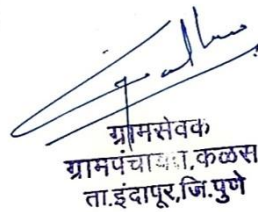 ग्रामसेवक
ग्रामपंचायत,कळस
ता.इंदापूर,जि.पुणे